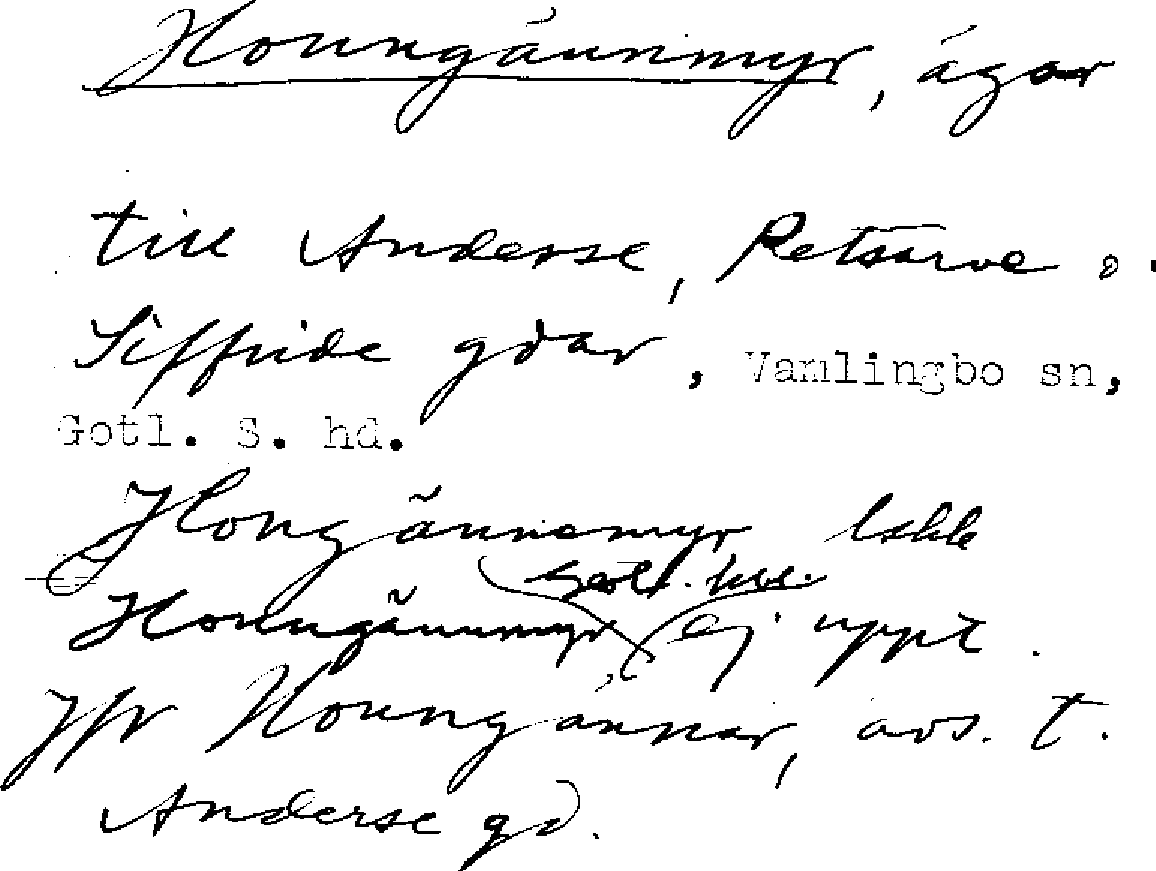 Hounngännmyr, ägor
till Anderse, Petsarve o.
Siffride gdar, Vamlingbo sn,
Gotl. S. hd.
Hongännemyr Iskk
Gotl. hll.
Hounngännmyr, ej uppt.
Jfr Houngännar, avs. t.
Anderse gd.